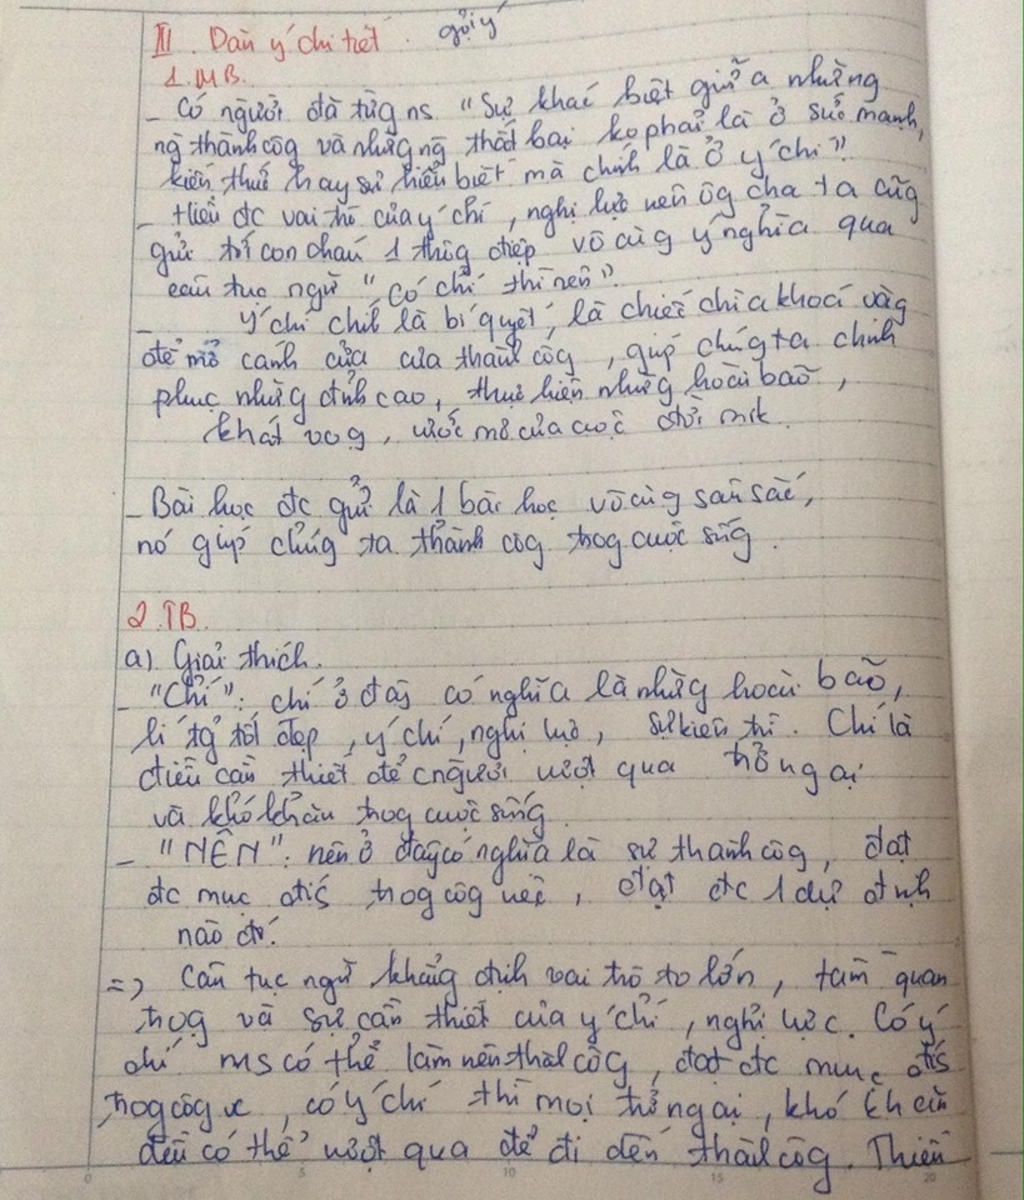 III. Dàn ý chi tiết. gợi ý
1. MB.
_ Có người đã từg ns "Sự khác biệt giữa những
ng thành côg và nhữg ng thất bại ko phải là ở sức mạnh,
kiến thức hay sự hiểu biết mà chính là ở ý chí".
_ Hiểu đc vai trò của ý chí, nghị lực nên ôg cha ta cũg
gửi tới con cháu 1 thôg điệp vô cùg ý nghĩa qua
câu tục ngữ "Có chí thì nên".
_ Ý chí chíh là bí quyết, là chiếc chìa khoá vàg
để mở cánh cửa của thàh côg, giúp chúg ta chinh
phục nhữg đỉnh cao, thực hiện nhữg hoài bão,
khát vọg, ước mơ của cuộc đời mik.
_ Bài học đc gửi là 1 bài học vô cùg sâu sắc,
nó giúp chúg ta thành côg trog cuộc sốg.
2. TB.
a). Giải thích.
_ "Chí": chí ở đây có nghĩa là nhữg hoài bão,
lí tưởg tốt đẹp, ý chí, nghị lực, sự kiên trì. Chí là
điều cần thiết để cngười vượt qua trở ngại
và khó khăn trog cuộc sốg.
_ "NÊN": nên ở đây có nghĩa là sự thành côg, đạt
đc mục đíc trog côg việc, đạt đc 1 dự định
nào đó.
=> Câu tục ngữ khẳg định vai trò to lớn, tầm quan
trọg và sự cần thiết của ý chí, nghị lực. Có ý
chí ms có thể làm nên thàh côg, đạt đc mục đíc
trog côg vc, có ý chí thì mọi trở ngại, khó khăn
đều có thể vượt qua để đi đến thàh côg. Thiếu
0 5 10 15 20